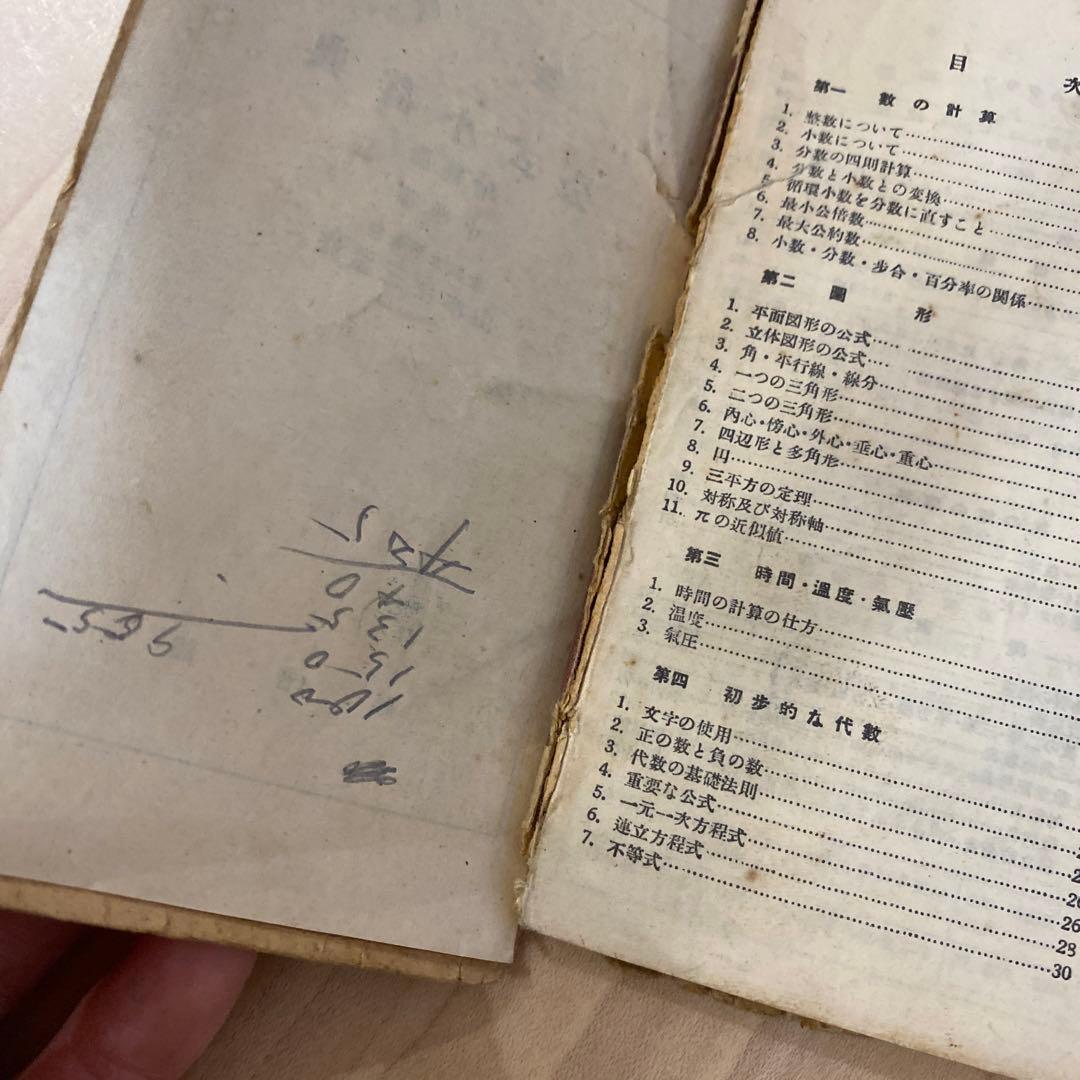 目 次
第一 数の計算
1. 整数について
2. 小数について
3. 分数の四則計算
4. 分数と小数との変換
5. 循環小数を分数に直すこと
6. 最小公倍数
7. 最大公約数
8. 小数・分数・歩合・百分率の関係
第二 圖形
1. 平面図形の公式
2. 立体図形の公式
3. 角・平行線・線分
4. 一つの三角形
5. 二つの三角形
6. 內心・傍心・外心・垂心・重心
7. 四辺形と多角形
8. 円
9. 三平方の定理
10. 対称及び対称軸
11. πの近似値
第三 時間・溫度・氣壓
1. 時間の計算の仕方
2. 温度
3. 氣圧
第四 初步的な代數
1. 文字の使用
2. 正の数と負の数
3. 代数の基礎法則
4. 重要な公式
5. 一元一次方程式 26
6. 連立方程式 28
7. 不等式 30